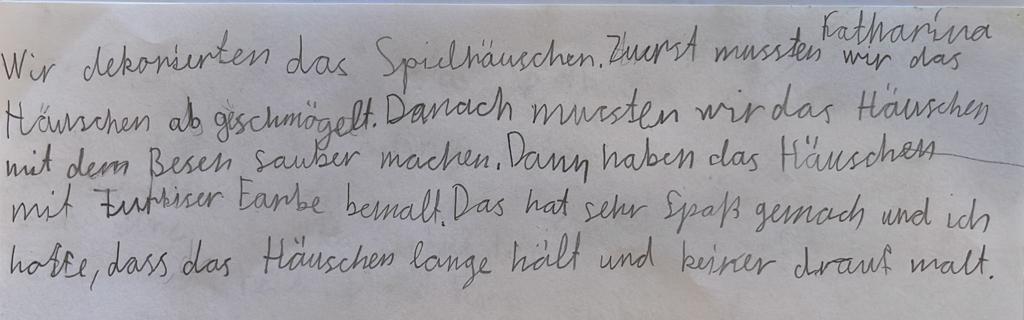 Katharina
Wir dekorierten das Spielhäuschen. Zuerst mussten wir das
Häuschen ab geschmögelt. Danach mussten wir das Häuschen
mit dem Besen sauber machen. Dann haben das Häuschen
mit Türkiser Farbe bemalt. Das hat sehr Spaß gemach und ich
hoffe, dass das Häuschen lange hält und keiner drauf malt.